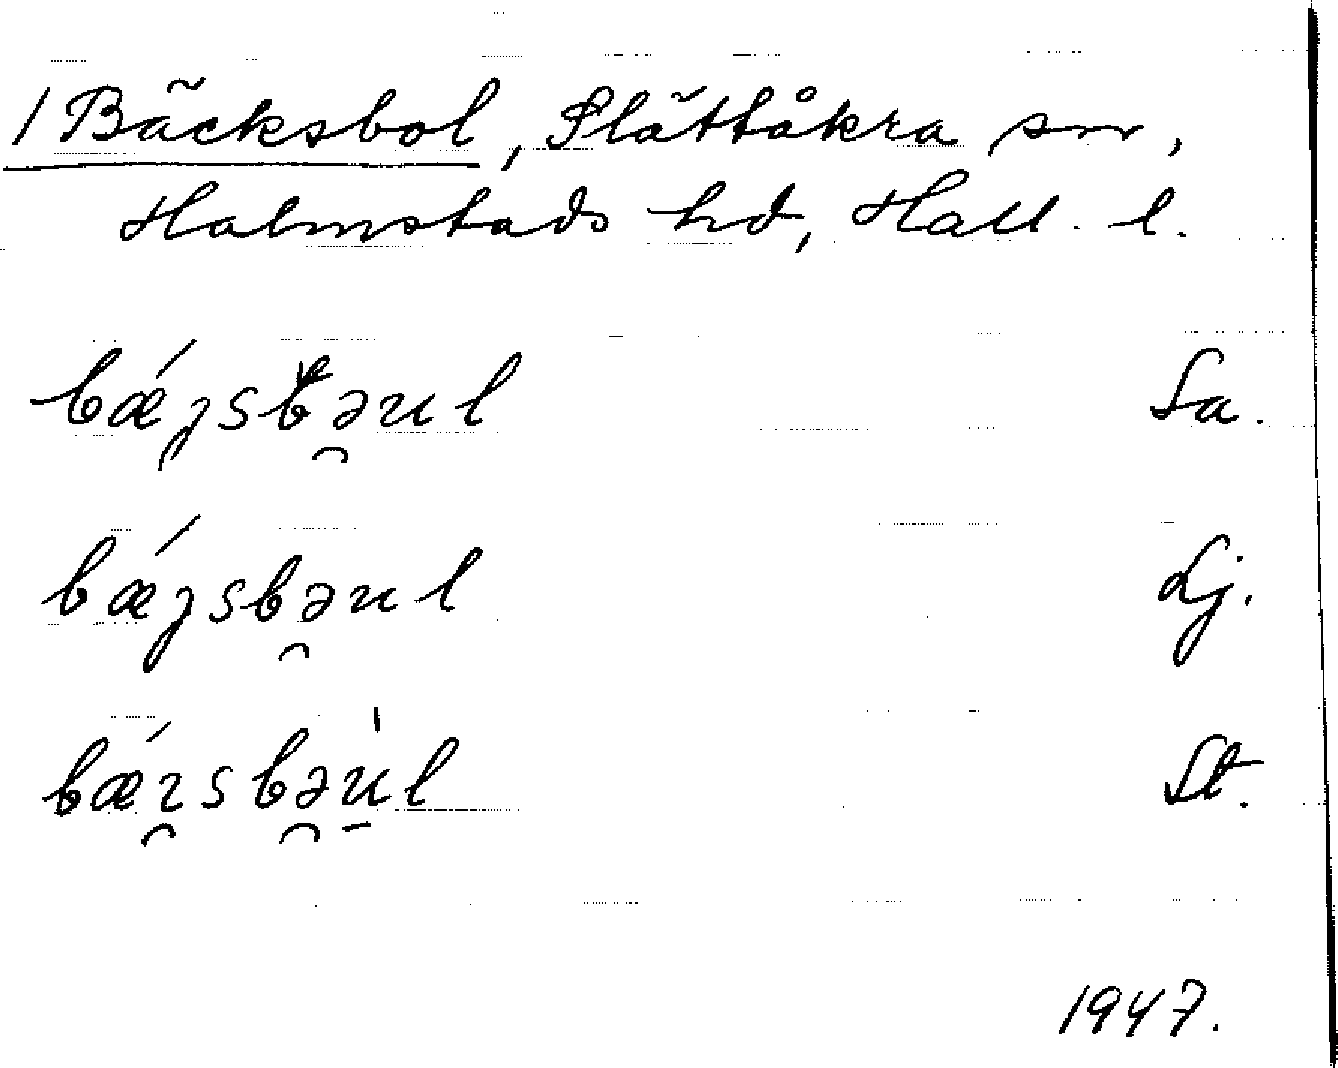 1 Bäcksbol, Slättåkra sn,
Halmstads hd, Hall. l.
bǽȷsbə̯ul Sa.
bǽȷsbə̯ul Lj.
bǽɿ̯sbə̯u̱̍l St.
1947.